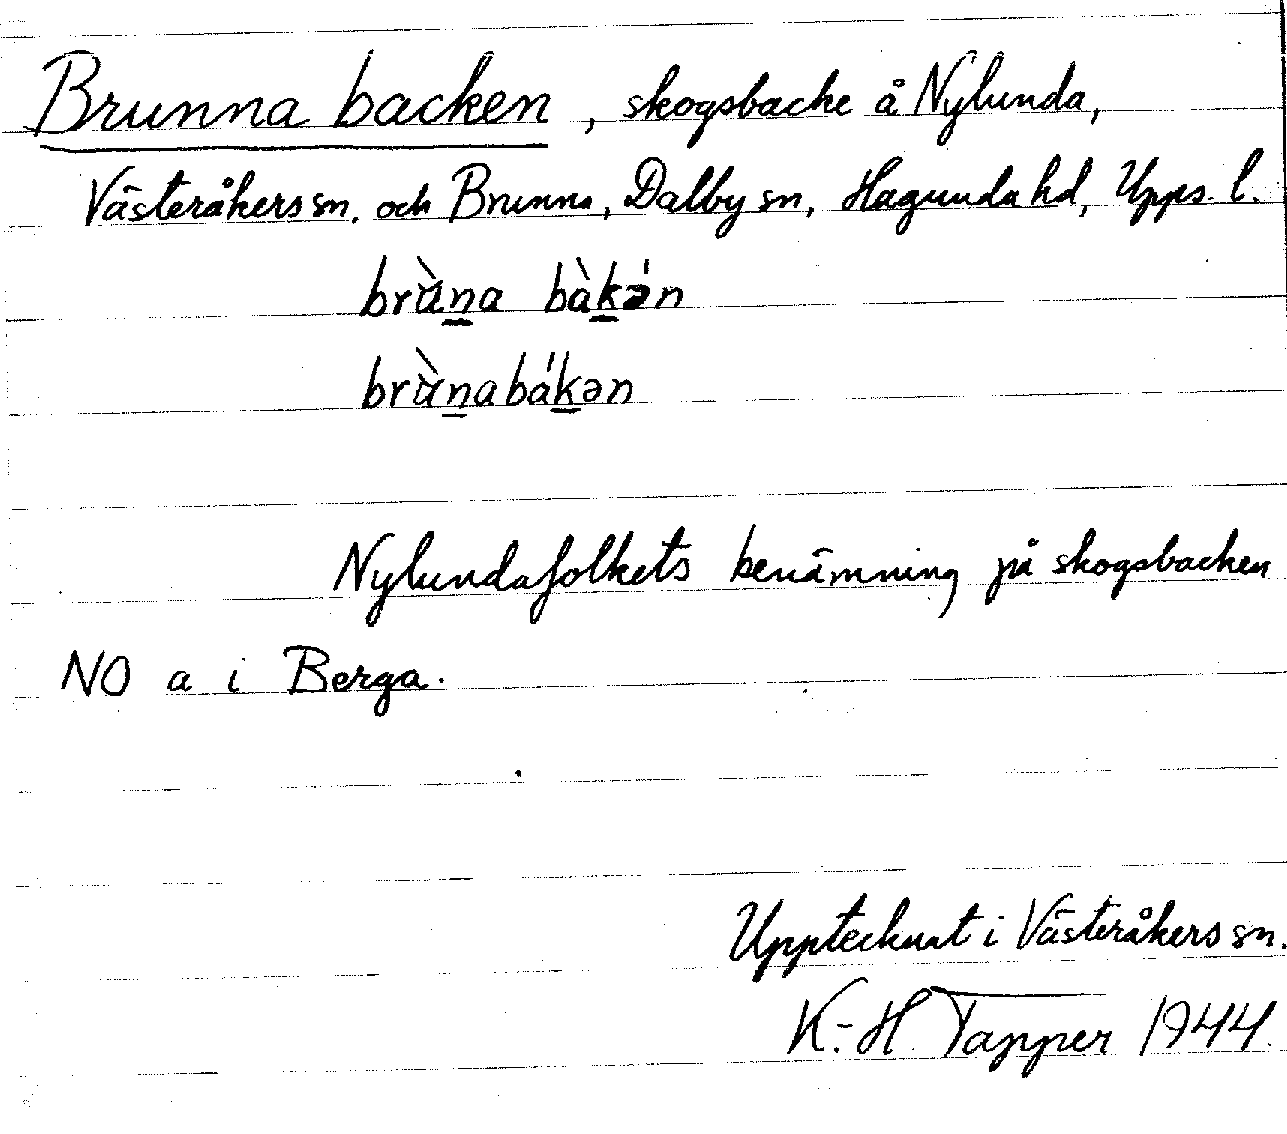 Brunna backen, skogsbacke å Nylunda,
Västeråkers sn. och Brunna, Dalby sn, Hagunda hd, Upps. l.
brùna bàkə́n
brùnabákən
Nylundafolkets benämning på skogsbacken
NO a i Berga.
Upptecknat i Västeråkers sn.
K.-H Tapper 1944.